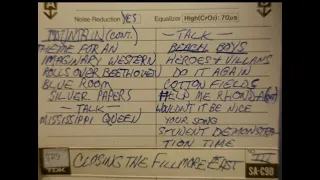 Noise Reduction YES
Equalizer High(CrO2): 70µs
MOUNTAIN (CONT.)
THEME FOR AN
IMAGINARY WESTERN
ROLL OVER BEETHOVEN
BLUE ROOM
SILVER PAPERS
— TALK —
MISSISSIPPI QUEEN
— TALK —
BEACH BOYS
HEROES + VILLANS
DO IT AGAIN
COTTON FIELDS
HELP ME RHONDA
WOULDN'T IT BE NICE
YOUR SONG
STUDENT DEMONSTR-
TION TIME
TDK
CLOSING THE FILLMORE EAST
III
SA-C90